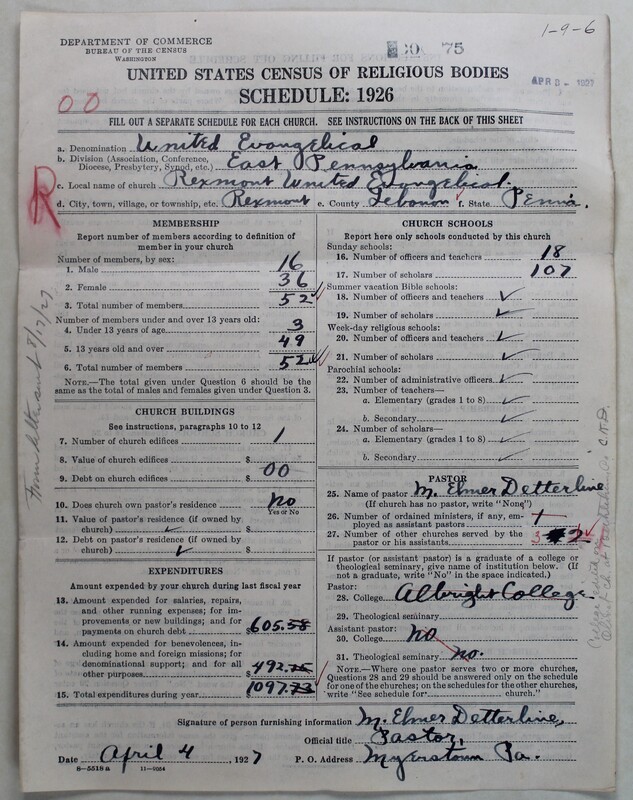 1-9-6
DEPARTMENT OF COMMERCE
BUREAU OF THE CENSUS
WASHINGTON
75
APR
UNITED STATES CENSUS OF RELIGIOUS BODIES
SCHEDULE: 1926
00
FILL OUT A SEPARATE SCHEDULE FOR EACH CHURCH. SEE INSTRUCTIONS ON THE BACK OF THIS SHEET
a. Denomination United Evangelical
b. Division (Association, Conference, Diocese, Presbytery, Synod, etc.) East Pennsylvania
c. Local name of church Rexmont United Evangelical.
d. City, town, village, or township, etc. Rexmont e. County Lebanon f. State Penna.
R
MEMBERSHIP
Report number of members according to definition of
member in your church
Number of members, by sex:
1. Male 16
2. Female 36
3. Total number of members 52
Number of members under and over 13 years old:
4. Under 13 years of age 3
5. 13 years old and over 49
6. Total number of members 52
NOTE.—The total given under Question 6 should be
the same as total of males and females given under Question 3.
CHURCH BUILDINGS
See instructions, paragraphs 10 to 12
7. Number of church edifices 1
8. Value of church edifices $
9. Debt on church edifices $ 00
10. Does church own pastor's residence? No
Yes or No
11. Value of pastor's residence (if owned by
church) $
12. Debt on pastor's residence (if owned by
church) $
EXPENDITURES
Amount expended by your church during last fiscal year
13. Amount expended for salaries, repairs,
and other running expenses; for im-
provements or new buildings; and for
payments on church debt $ 605.58
14. Amount expended for benevolences, in-
cluding home and foreign missions; for
denominational support; and for all
other purposes $ 492.
15. Total expenditures during year $ 1097.73
CHURCH SCHOOLS
Report here only schools conducted by this church
Sunday schools:
16. Number of officers and teachers 18
17. Number of scholars 107
Summer vacation Bible schools:
18. Number of officers and teachers
19. Number of scholars
Week-day religious schools:
20. Number of officers and teachers
21. Number of scholars
Parochial schools:
22. Number of administrative officers
23. Number of teachers—
a. Elementary (grades 1 to 8)
b. Secondary
24. Number of scholars—
a. Elementary (grades 1 to 8)
b. Secondary
PASTOR
25. Name of pastor M. Elmer Detterline
(If church has no pastor, write "None")
26. Number of ordained ministers, if any, em-
ployed as assistant pastors
27. Number of other churches served by the
pastor or his assistants 3 2
If pastor (or assistant pastor) is a graduate of a college or
theological seminary, give name of institution below. (If
not a graduate, write "No" in the space indicated.)
Pastor:
28. College Albright College.
29. Theological seminary
Assistant pastor:
30. College No
31. Theological seminary No.
NOTE.—Where one pastor serves two or more churches,
Questions 28 and 29 should be answered only on the schedule
for one of the churches; on the schedules for the other churches,
write "See schedule for church."
Signature of person furnishing information M. Elmer Detterline,
Official title Pastor,
Date April 4, 1927 P. O. Address Myerstown Pa.
8—5518 a 11—9064